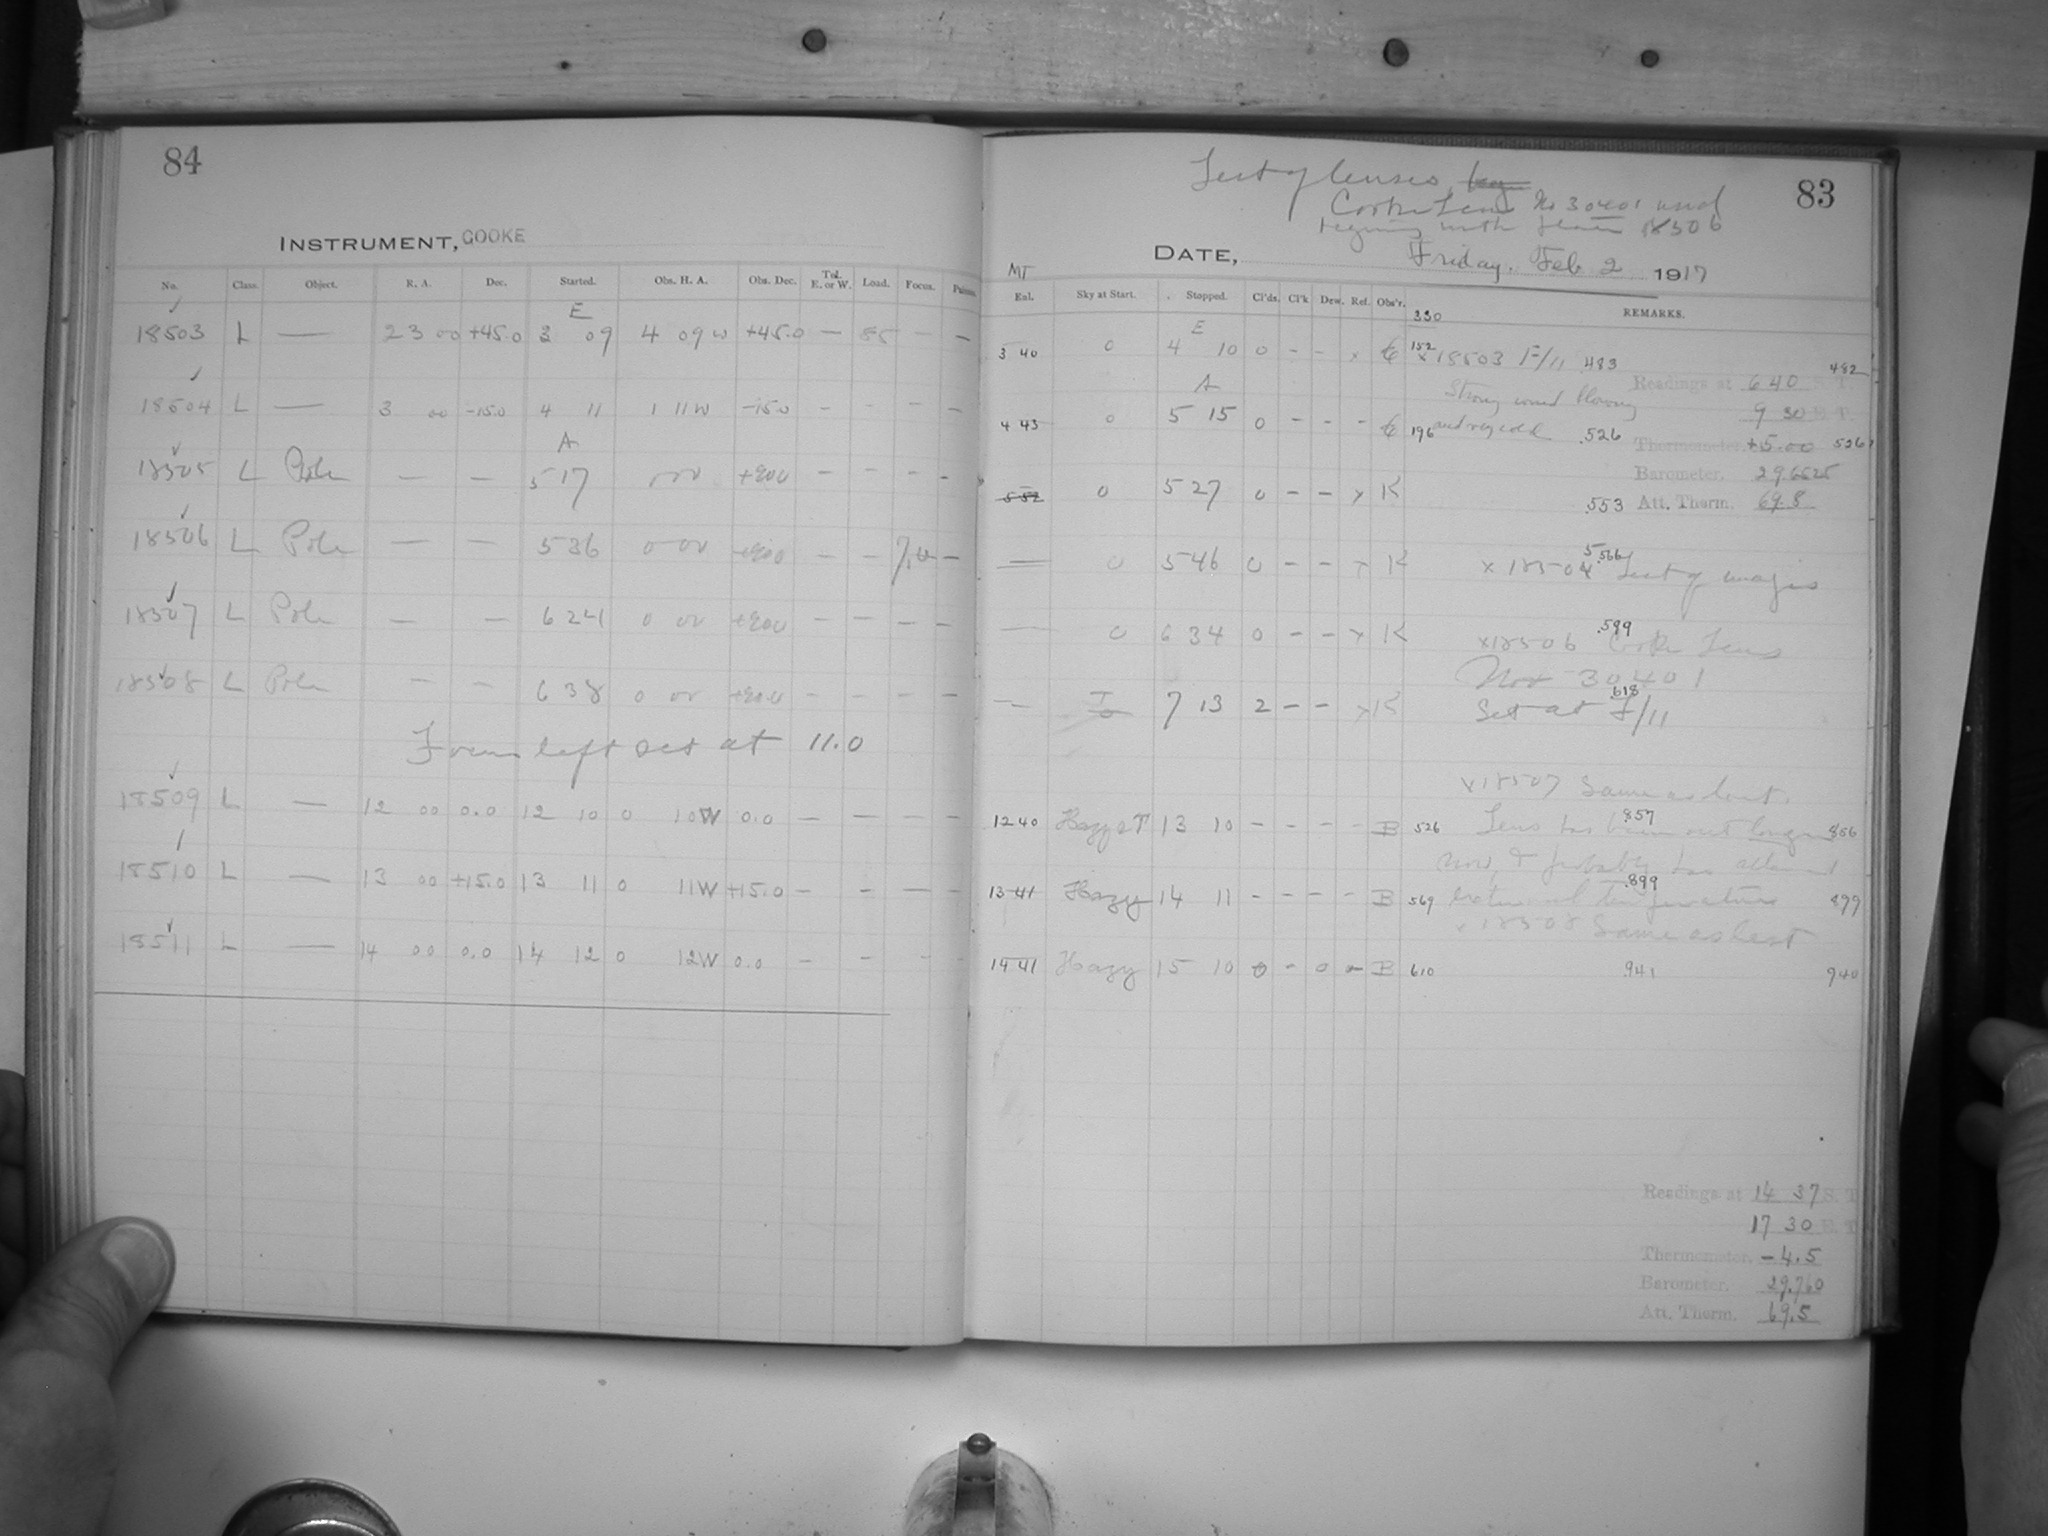 84
INSTRUMENT, COOKE
No. Class. Object. R. A. Dec. Started. Obs. H. A. Obs. Dec. Tel. E. or W. Load. Focus.
E
18503 L — 23 00 +45.0 3 09 4 09 W +45.0 — — —
18504 L — 3 00 -15.0 4 11 1 11 W -15.0 - - - -
A
18505 L Pole — — 5 17 +900 - - - -
18506 L Pole — — 5 36 0 00 +900 — — 7.0 —
18507 L Pole — — 6 24 0 00 +900 — — — —
18508 L Pole — — 6 38 0 00 +900 — — — —
Focus left set at 11.0
18509 L — 12 00 0.0 12 10 0 10W 0.0 — — — —
18510 L — 13 00 +15.0 13 11 0 11W +15.0 — - — —
18511 L — 14 00 0.0 14 12 0 12W 0.0 — - - -
Test of lenses,
83
Cooke Lens No 30401 used
18506
DATE, Friday. Feb 2 1917
MT
Enl. Sky at Start. Stopped. Cl'ds. Cl'k Dew. Ref. Obs'r. REMARKS.
330
E
3 40 0 4 10 0 - - x 152 x 18503 F/11 .483 482
Readings at 6 40 S. T.
A
Strong wind blowing
9 30 E. T.
4 43 0 5 15 0 - - - 196 and very cold .526
Thermometer. +5.00 526
Barometer. 29.6525
0 5 27 0 - - x K .553
Att. Therm. 69.8
— 0 5 46 0 - - x K .566
x 18505 Test of images
— 0 6 34 0 - - x K .599
x18506 Cooke Lens
30401
— 7 13 2 - - x K .618
Set at F/11
x18507 Same as last.
12 40 Hazy 13 10 - - - - B 526 .857 856
Lens has been out longer
now, & probably has attained
13 41 Hazy 14 11 - - - - B 569 .899 899
external temperature
x 18508 Same as last
14 41 Hazy 15 10 0 - 0 - B 610 .941 940
Readings at 14 37 S. T.
17 30 E. T.
Thermometer. -4.5
Barometer. 29.760
Att. Therm. 69.5